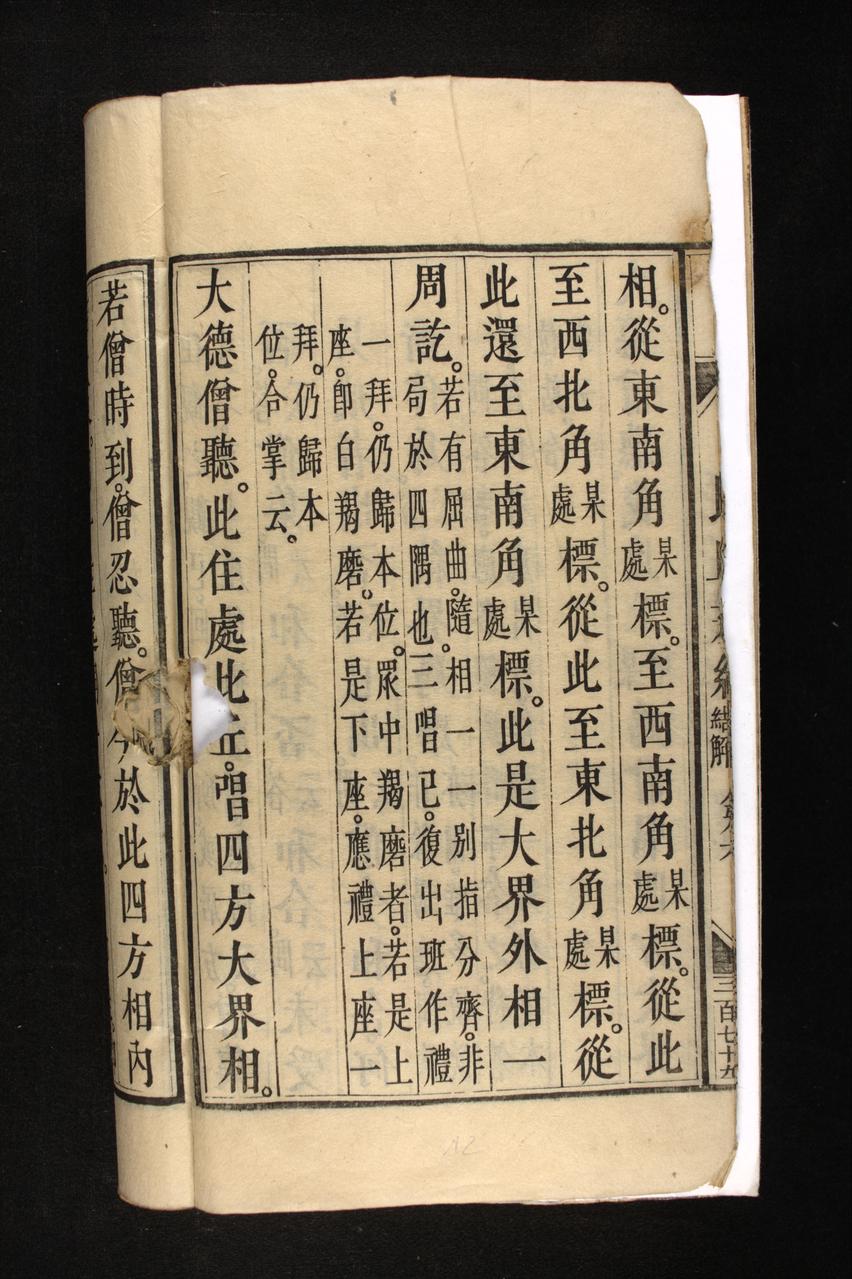 結解
三百七十九
相。從東南角某處標。至西南角某處標。從此
至西北角某處標。從此至東北角某處標。從
此還至東南角某處標。此是大界外相一
周訖。若有屈曲。隨相一一別指分齊。非
局於四隅也。三唱已。復出班作禮
一拜。仍歸本位。眾中羯磨者。若是上
座。卽白羯磨。若是下座。應禮上座一
拜。仍歸本
位。合掌云。
大德僧聽。此住處比丘。唱四方大界相。
若僧時到。僧忍聽。僧今於此四方相內